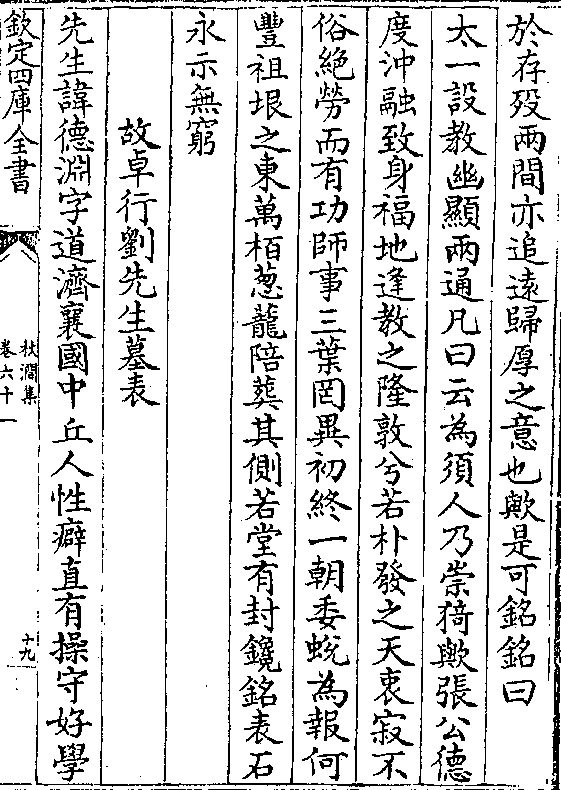 於存殁兩間亦追逺歸厚之意也歟是可銘銘曰
太一設教幽顯兩通凡曰云為須人乃崇猗歟張公德
度沖融致身福地逢教之隆敦兮若朴發之天衷寂不
俗絶勞而有功師事三葉罔異初終一朝委蛻為報何
豐祖垠之東萬栢葱龍陪葬其側若堂有封鑱銘表石
永示無窮
故卓行劉先生墓表
先生諱德淵字道濟襄國中丘人性癖直有操守好學
欽定四庫全書
秋澗集
卷六十一
十九